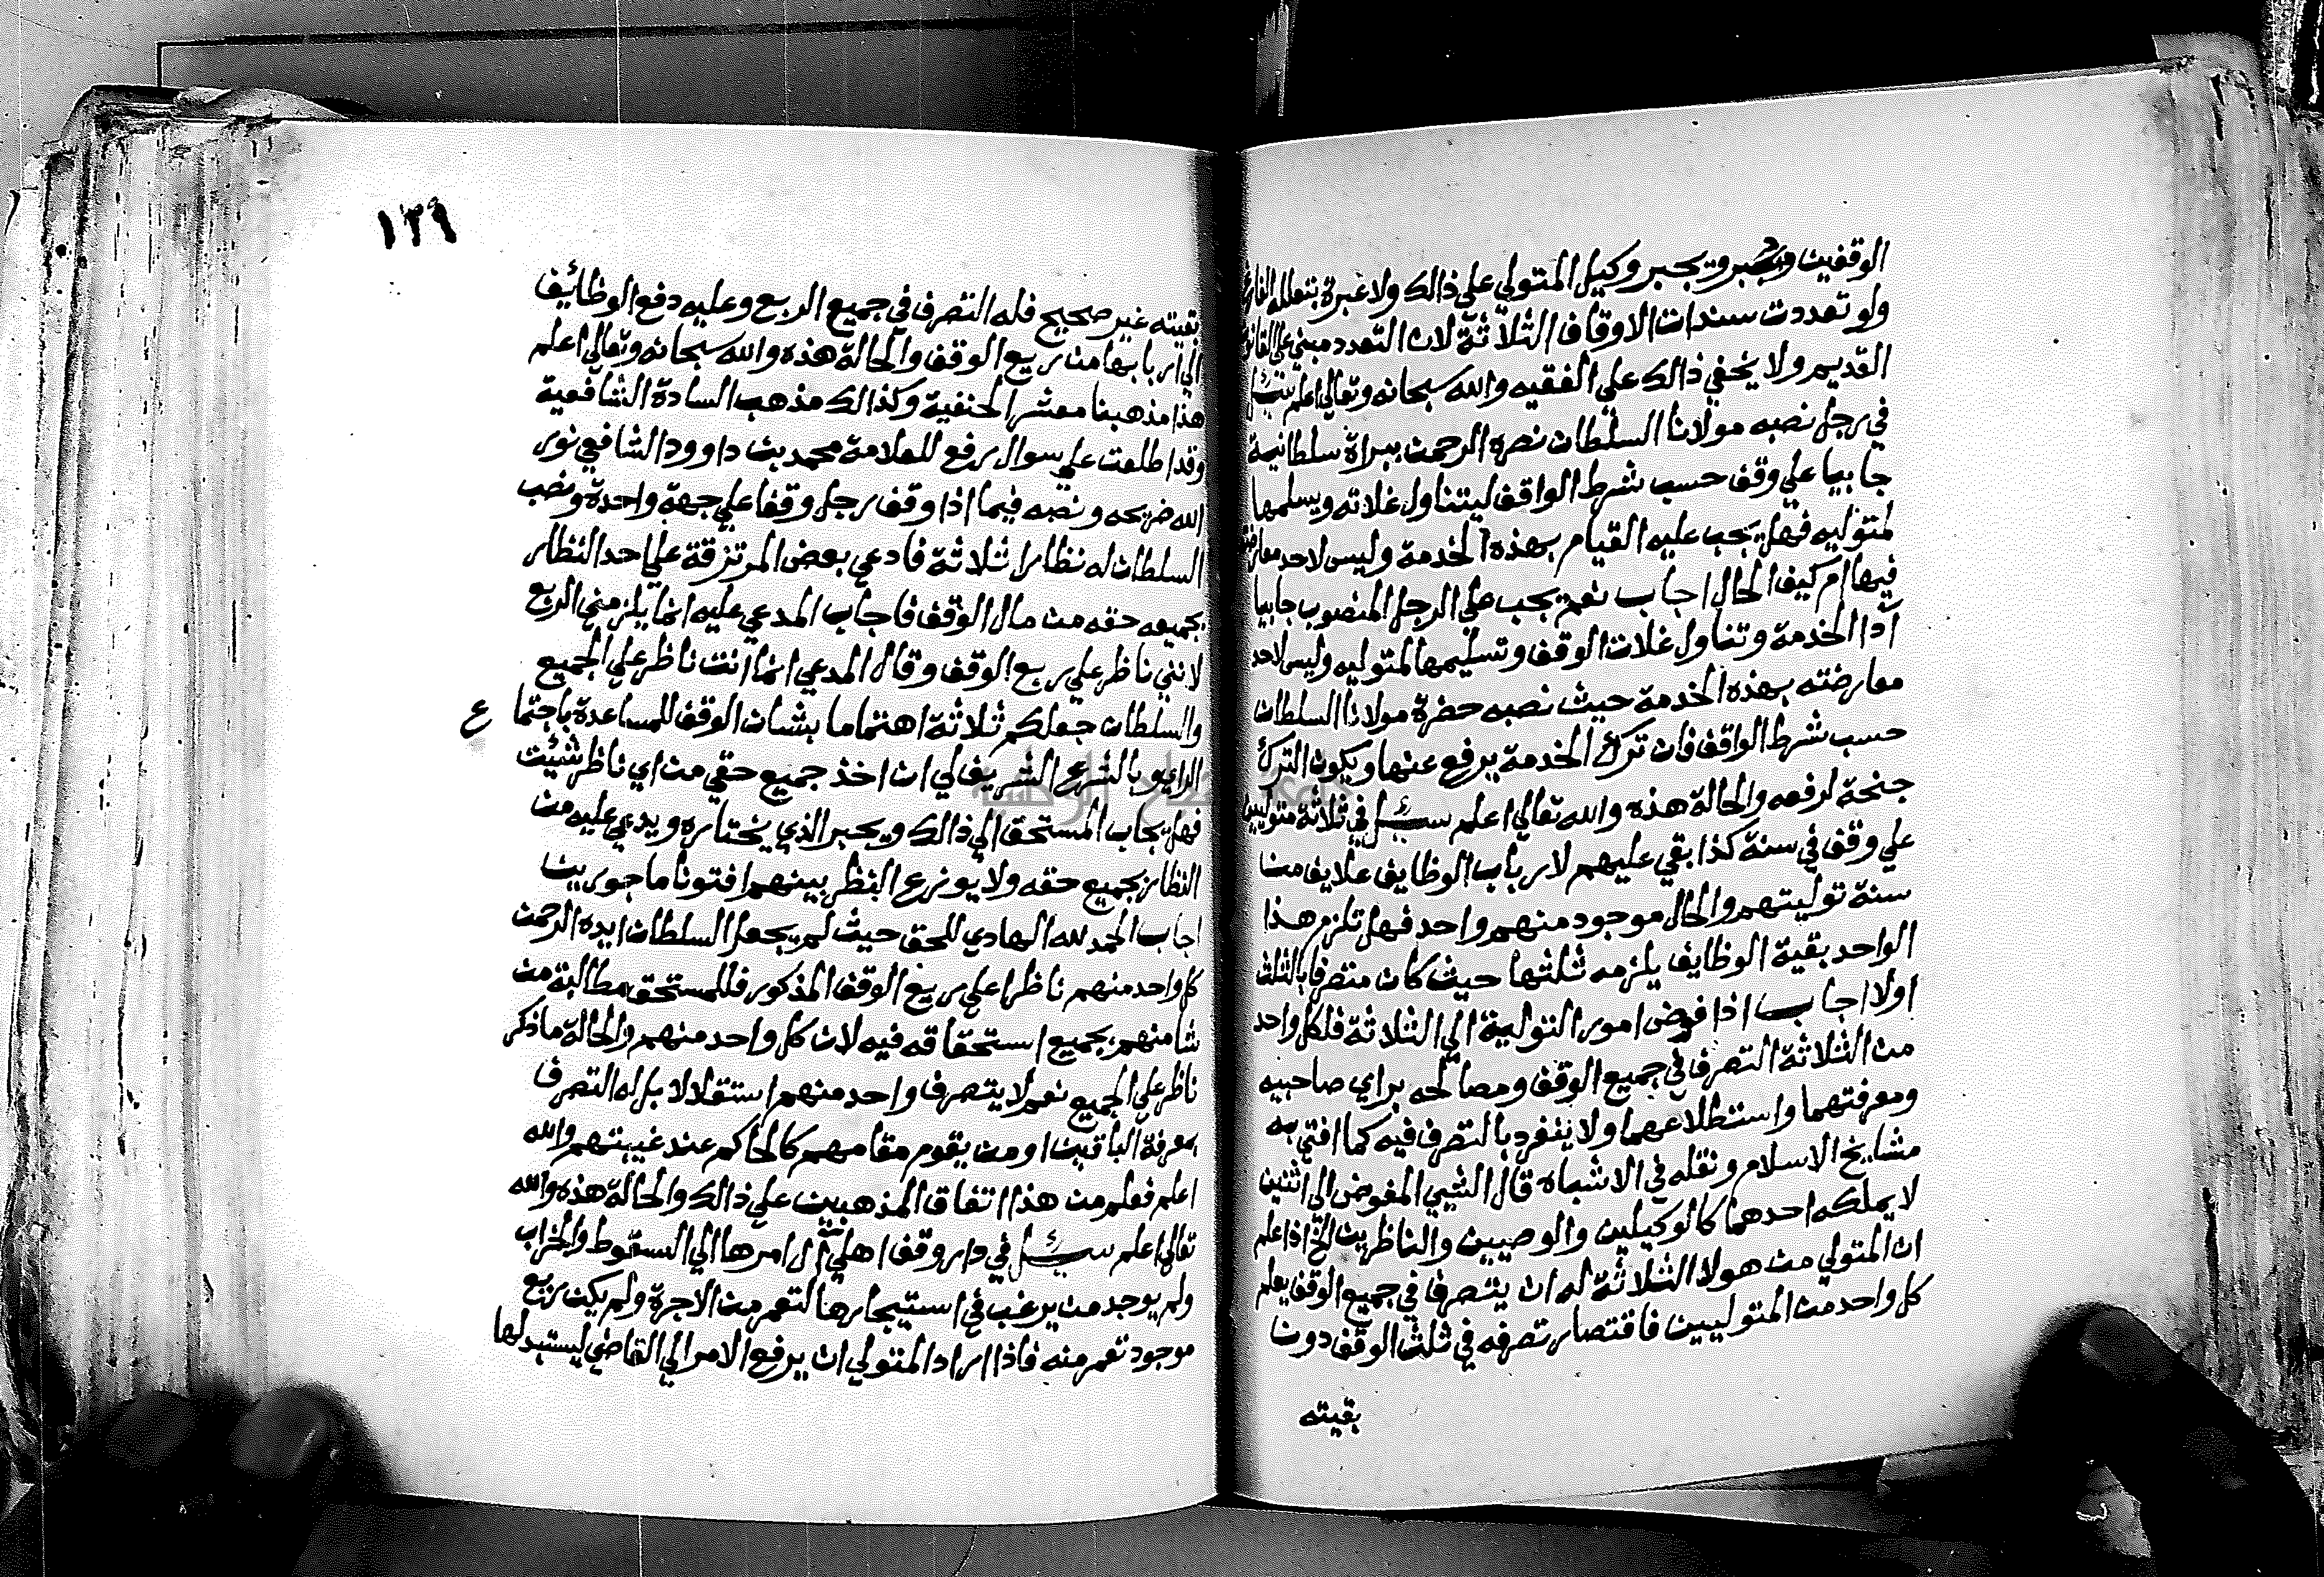 الوقفين ويجبر وكيل المتولي علي ذالك ولا عبرة بتعلله
ولو تعددت سندات الاوقاف الثلاثة لان التعدد مبني علي
القديم ولا يخفي ذالك علي الفقيه والله سبحانه وتعالي اعلم سئل
في رجل نصبه مولانا السلطان نصره الرحمن ببراة سلطانية
جابيا علي وقف حسب شرط الواقف ليتناول غلاته ويسلمها
لمتوليه فهل يجب عليه القيام بهذه الخدمة وليس لاحد معارضته
فيها ام كيف الحال اجاب نعم يجب علي الرجل المنصوب جابيا
آدا الخدمة وتناول غلات الوقف وتسليمها لمتوليه وليس لاحد
معارضته بهذه الخدمة حيث نصبه حضرة مولانا السلطان
حسب شرط الواقف فان ترك الخدمة يرفع عنها ويكون الترك
جنحة لرفعه والحالة هذه والله تعالي اعلم سئل في ثلاثة متوليين
علي وقف في سنة كذا بقي عليهم لارباب الوظايف علايف من
سنة توليتهم والحال موجود منهم واحد فهل تلزم هذا
الواحد بقية الوظايف يلزمه ثلثها حيث كان متصرفا بالثلث
اولا اجاب اذا فوض امور التولية الي الثلاثة فلكل واحد
من الثلاثة التصرف في جميع الوقف ومصالحه براي صاحبيه
ومعرفتهما واستطلاعهما ولا ينفرد بالتصرف فيه كما افتي به
مشايخ الاسلام ونقله في الاشباه قال الشيي المفوض الي اثنين
لا يملكه احدهما كالوكيلين والوصيين والناظرين الخ اذا علم
ان المتولي من هولا الثلاثة له ان يتصرف في جميع الوقف يعلم
كل واحد من المتوليين فاقتصار تصرفه في ثلث الوقف دون
بقيته
١٣٩
بقيته غير صحيح فله التصرف في جميع الربع وعليه دفع الوظائيف
الي اربابها من ريع الوقف والحالة هذه والله سبحانه وتعالي اعلم
هذا مذهبنا معشر الحنفية وكذالك مذهب السادة الشافعية
وقد اطلعت علي سوال رفع للعلامة محمد بن داوود الشافعي نور
الله ضريحه ونصه فيما اذا وقف رجل وقفا علي جهة واحدة ونصب
السلطان له نظارا ثلاثة فادعي بعض المرتزقة علي احد النظار
بجميع حقه من مال الوقف فاجاب المدعي عليه انما يلزمني الربع
لانني ناظر علي ربع الوقف وقال المدعي انما انت ناظر علي الجميع
والسلطان جعلكم ثلاثة اهتماما بشان الوقف للمساعدة باجتما ع
الراي وبالشرع الشريف لي ان اخذ جميع حقي من اي ناظر شئيت
فهل يجاب المستحق الي ذالك ويجبر الذي يختاره ويدعي عليه من
النظار بجميع حقه ولا يوزع النظر بينهم افتونا ماجورين
اجاب الحمد لله الهادي للحق حيث لم يجعل السلطان ايده الرحمن
كل واحد منهم ناظرا علي ريع الوقف المذكور فللمستحق مطالبة من
شا منهم بجميع استحقاقه فيه لان كل واحد منهم والحالة ما ذكر
ناظر علي الجميع نعم لا يتصرف واحد منهم استقلالا بل له التصرف
بمعرفة الباقين او من يقوم مقامهم كالحاكم عند غيبتهم والله
اعلم فعلم من هذا اتفاق المذهبين علي ذالك والحالة هذه والله
تعالي اعلم سئل في دار وقف اهلي آل امرها الي السقوط والخراب
ولم يوجد من يرغب في استيجارها لتعمر من الاجرة ولم يكن ريع
موجود تعمر منه فاذا اراد المتولي ان يرفع الامر الي القاضي ليستبدلها